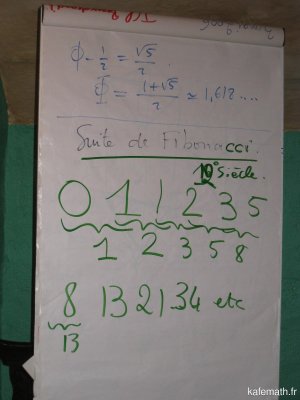 ϕ - 1/2 = √5/2
Φ = 1+√5/2 ≃ 1,612....
Suite de Fibonacci.
10° Siècle.
0 1 1 2 3 5
1 2 3 5 8
8 13 21 34 etc
13
kafemath.fr